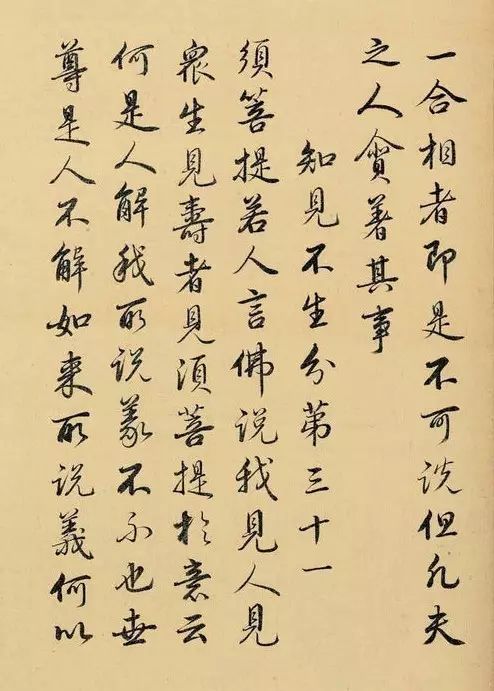 一合相者即是不可说但凡夫
之人貪著其事
知見不生分第三十一
須菩提若人言佛说我見人見
衆生見壽者見須菩提於意云
何是人解我所说義不不也世
尊是人不解如来所说義何以